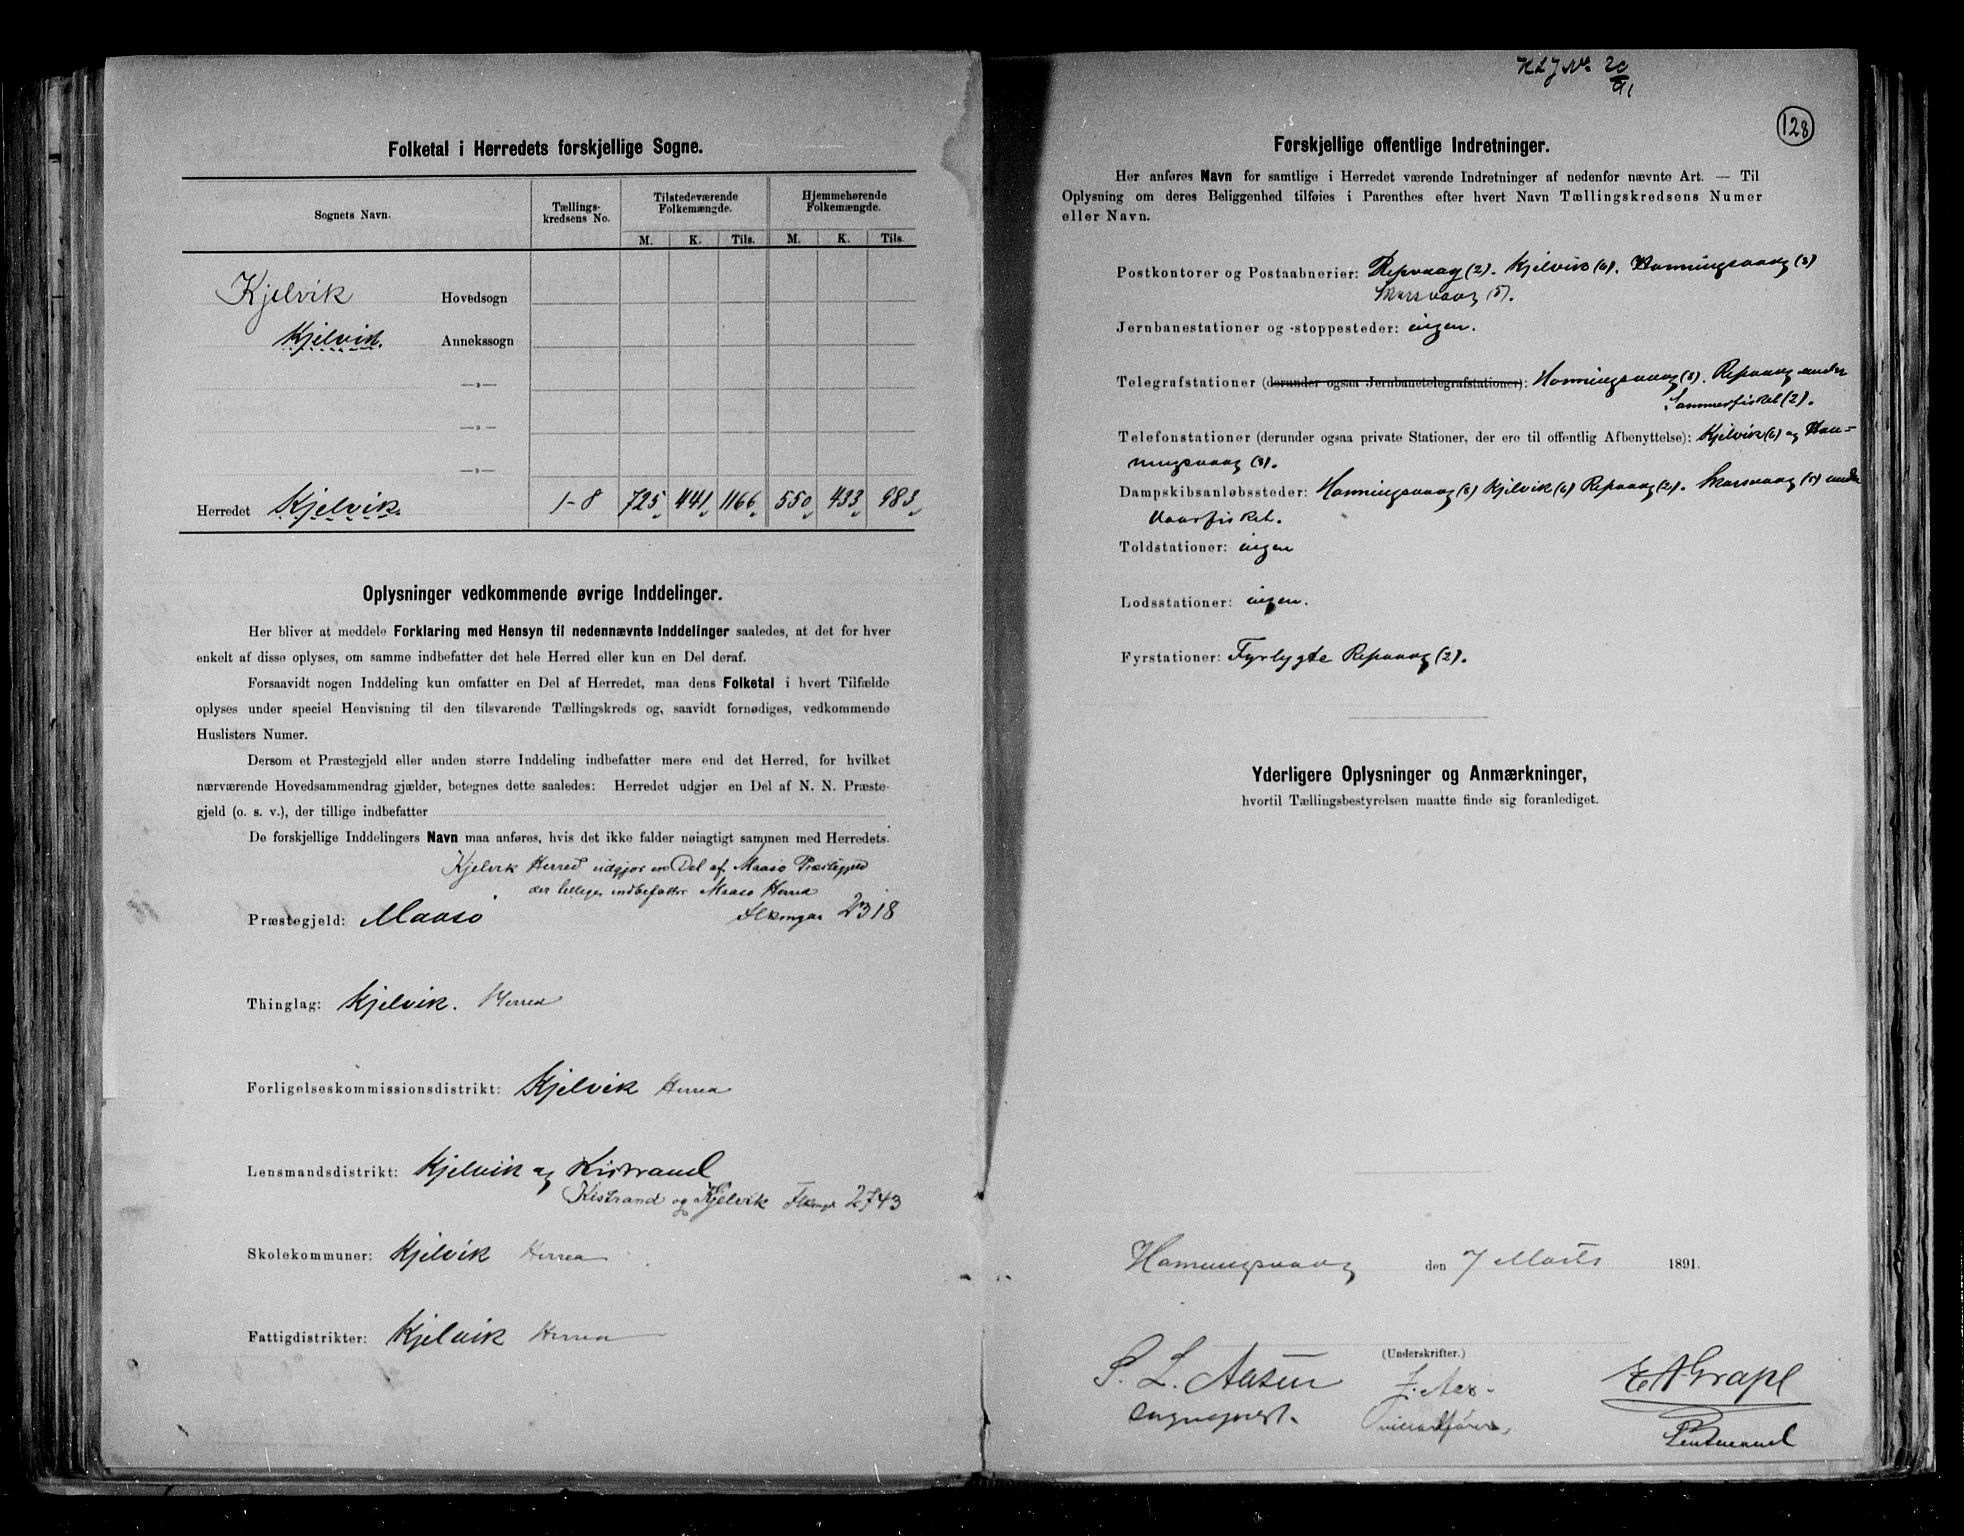 Folketal i Herredets forskjellige Sogne.
Sognets Navn.
Tællings-
kredsens No.
Tilstedeværende
Folkemængde.
Hjemmehørende
Folkemængde.
M. K. Tils. M. K. Tils.
Kjelvik Hovedsogn
Kjelvik. Annekssogn
—„—
—„—
—„—
Herredet Kjelvik. 1-8 725 441 1166 550 433 983
Oplysninger vedkommende øvrige Inddelinger.
Her bliver at meddele Forklaring med Hensyn til nedennævnte Inddelinger saaledes, at det for hver
enkelt af disse oplyses, om samme indbefatter det hele Herred eller kun en Del deraf.
Forsaavidt nogen Inddeling kun omfatter en Del af Herredet, maa dens Folketal i hvert Tilfælde
oplyses under speciel Henvisning til den tilsvarende Tællingskreds og, saavidt fornødiges, vedkommende
Huslisters Numer.
Dersom et Præstegjeld eller anden større Inddeling indbefatter mere end det Herred, for hvilket
nærværende Hovedsammendrag gjælder, betegnes dette saaledes: Herredet udgjør en Del af N. N. Præste-
gjeld (o. s. v.), der tillige indbefatter
De forskjellige Inddelingers Navn maa anføres, hvis det ikke falder nøiagtigt sammen med Herredets.
Kjelvik Herred udgjør en Del af Maasø Præstegjeld
der tillige indbefatter Maasø Herred
Præstegjeld: Maasø Flkmgde 2318
Thinglag: Kjelvik. Herred
Forligelseskommissionsdistrikt: Kjelvik Herred
Lensmandsdistrikt: Kjelvik og Kistrand
Kistrand og Kjelvik Flkmgd 2743
Skolekommuner: Kjelvik Herred
Fattigdistrikter: Kjelvik Herred
128
Forskjellige offentlige Indretninger.
Her anføres Navn for samtlige i Herredet værende Indretninger af nedenfor nævnte Art. — Til
Oplysning om deres Beliggenhed tilføies i Parenthes efter hvert Navn Tællingskredsens Numer
eller Navn.
Postkontorer og Postaabnerier: Repvaag (2). Kjelvik (6). Honningsvaag (8)
Skarsvaag (5).
Jernbanestationer og -stoppesteder: ingen.
Telegrafstationer (derunder ogsaa Jernbanetelegrafstationer): Honningsvaag (8). Repvaag under
Sommerfisket (2).
Telefonstationer (derunder ogsaa private Stationer, der ere til offentlig Afbenyttelse): Kjelvik (6) og Hon-
ningsvaag (8).
Dampskibsanløbssteder: Honningsvaag (8) Kjelvik (6) Repvaag (2). Skarsvaag (5) under
Vaarfisket.
Toldstationer: ingen
Lodsstationer: ingen.
Fyrstationer: Fyrlygte Repvaag (2).
Yderligere Oplysninger og Anmærkninger,
hvortil Tællingsbestyrelsen maatte finde sig foranlediget.
Honningsvaag den 7 Marts 1891.
(Underskrifter.)
S. L. Aasen
Sognepræst.